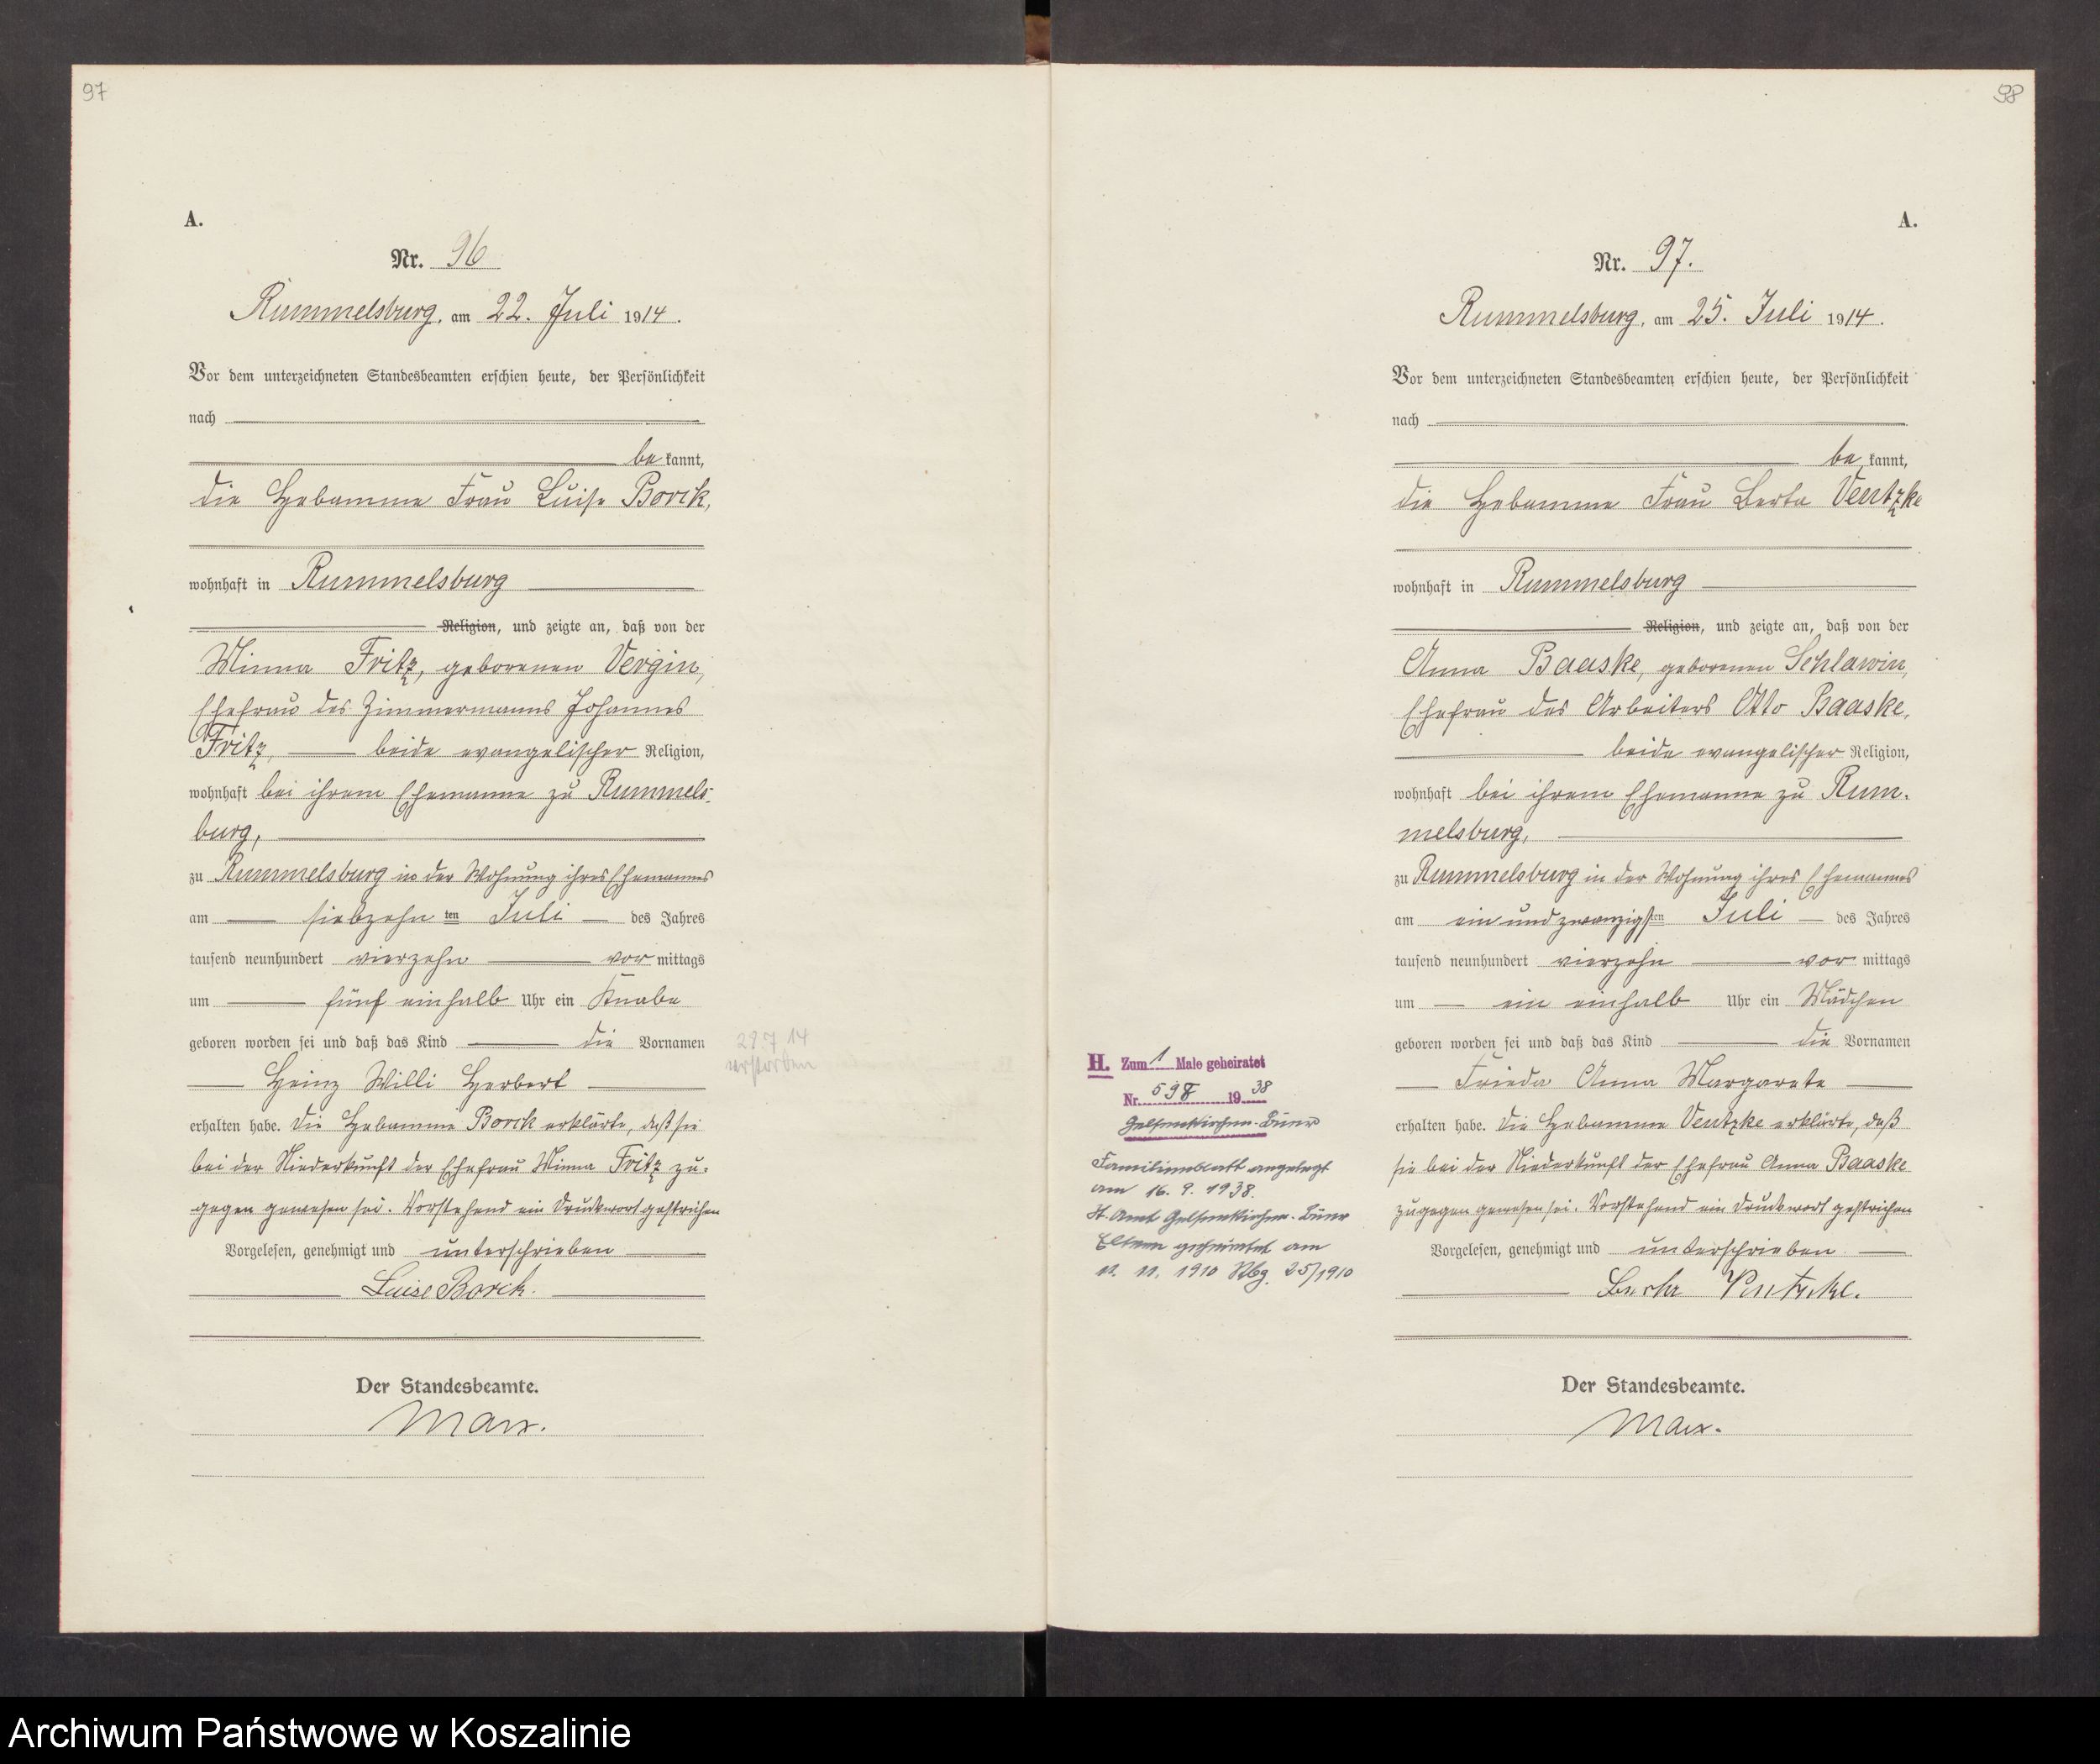 97
A.
Nr. 96
Rummelsburg, am 22. Juli 1914.
Vor dem unterzeichneten Standesbeamten erschien heute, der Persönlichkeit
nach
be kannt,
die Hebamme Frau Luise Borck,
wohnhaft in Rummelsburg
Religion, und zeigte an, daß von der
Minna Fritz, geborenen Vergin,
Ehefrau des Zimmermanns Johannes
Fritz, beide evangelischer Religion,
wohnhaft bei ihrem Ehemanne zu Rummels-
burg,
zu Rummelsburg in der Wohnung ihres Ehemannes
am siebzehn ten Juli des Jahres
tausend neunhundert vierzehn vor mittags
um fünf einhalb Uhr ein Knabe
geboren worden sei und daß das Kind die Vornamen
Heinz Willi Herbert
erhalten habe. Die Hebamme Borck erklärte, daß sie
bei der Niederkunft der Ehefrau Minna Fritz zu-
gegen gewesen sei. Vorstehend ein Druckwort gestrichen
Vorgelesen, genehmigt und unterschrieben
Luise Borck.
Der Standesbeamte.
Marx.
29.7 14
verstorben
98
A.
Nr. 97.
Rummelsburg, am 25. Juli 1914.
Vor dem unterzeichneten Standesbeamten erschien heute, der Persönlichkeit
nach
be kannt,
die Hebamme Frau Berta Ventzke
wohnhaft in Rummelsburg
Religion, und zeigte an, daß von der
Anna Baaske, geborenen Schlawin,
Ehefrau des Arbeiters Otto Baaske,
beide evangelischer Religion,
wohnhaft bei ihrem Ehemanne zu Rum-
melsburg,
zu Rummelsburg in der Wohnung ihres Ehemannes
am ein und zwanzigsten Juli des Jahres
tausend neunhundert vierzehn vor mittags
um ein einhalb Uhr ein Mädchen
geboren worden sei und daß das Kind die Vornamen
Frieda Anna Margarete
erhalten habe. Die Hebamme Ventzke erklärte, daß
sie bei der Niederkunft der Ehefrau Anna Baaske
zugegen gewesen sei. Vorstehend ein Druckwort gestrichen
Vorgelesen, genehmigt und unterschrieben
Der Standesbeamte.
Marx.
H. Zum 1 Male geheiratet
Nr. 598 1938
Gelsenkirchen-Buer
Familienblatt angelegt
am 16. 9. 1938.
St. Amt Gelsenkirchen-Buer
Eltern geheiratet am
11. 11. 1910 Rbg. 25/1910
Archiwum Państwowe w Koszalinie